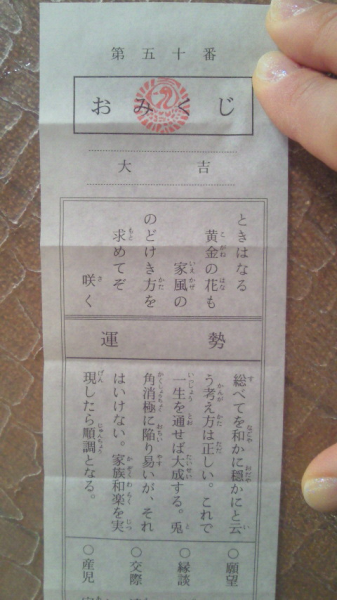 第五十番
おみくじ
大吉
ときはなる
黄金の花も
家風の
のどけき方を
求めてぞ
咲く
運勢
総べてを和かに穏かにと云
う考え方は正しい。これで
一生を通せば大成する。兎
角消極に陥り易いが、それ
はいけない。家族和楽を実
現したら順調となる。
○願望
○縁談
○交際
○産児